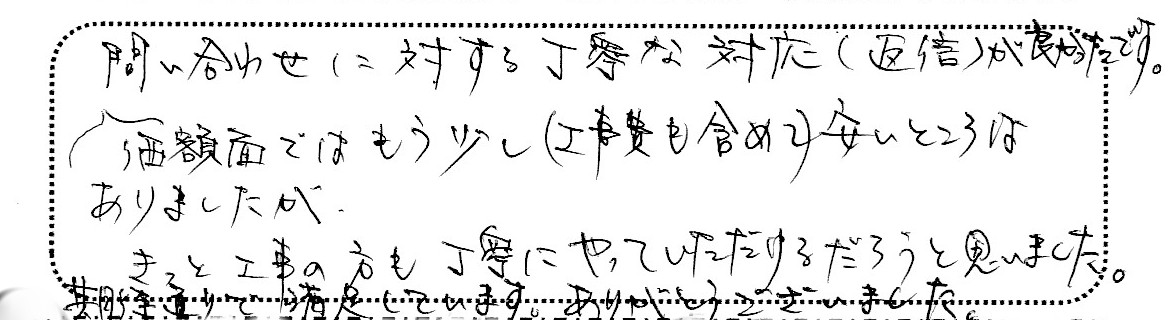 問い合わせに対する丁寧な対応(返信)が良かったです。
価額面ではもう少し(工事費も含めて)安いところは
ありましたが、
きっと工事の方も丁寧にやっていただけるだろうと思いました。
期待通りで満足しています。ありがとうございました。